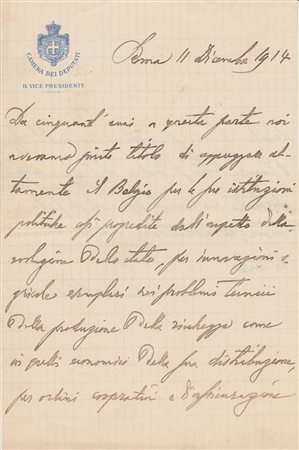 CAMERA DEI DEPUTATI
IL VICE PRESIDENTE
Roma 11 Dicembre 1914
Da cinquant'anni a questa parte noi
avevamo titolo di
altamente il Belgio per le sue istituzioni
politiche dall'aspetto della
evoluzione dello stato, per innovazioni a
gricole esemplari nei problemi tecnici
della produzione della ricchezza come
in quelli economici della sua distribuzione,
per ordini cooperativi e d'assicurazione